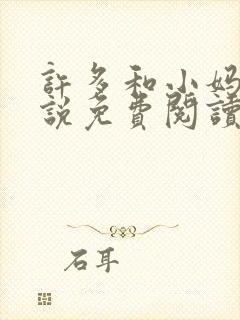 許多和小妈
說免費閱讀
石耳